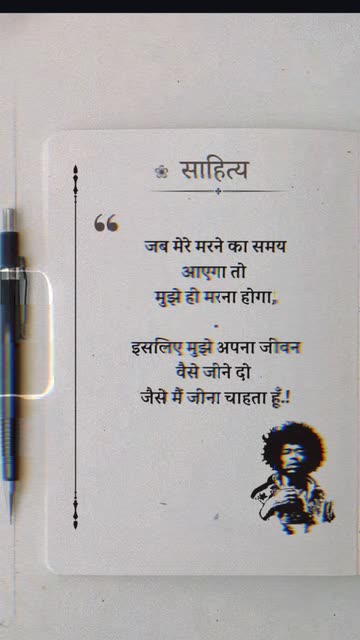 साहित्य
“
जब मेरे मरने का समय
आएगा तो
मुझे ही मरना होगा,
.
इसलिए मुझे अपना जीवन
वैसे जीने दो
जैसे मैं जीना चाहता हूँ.!